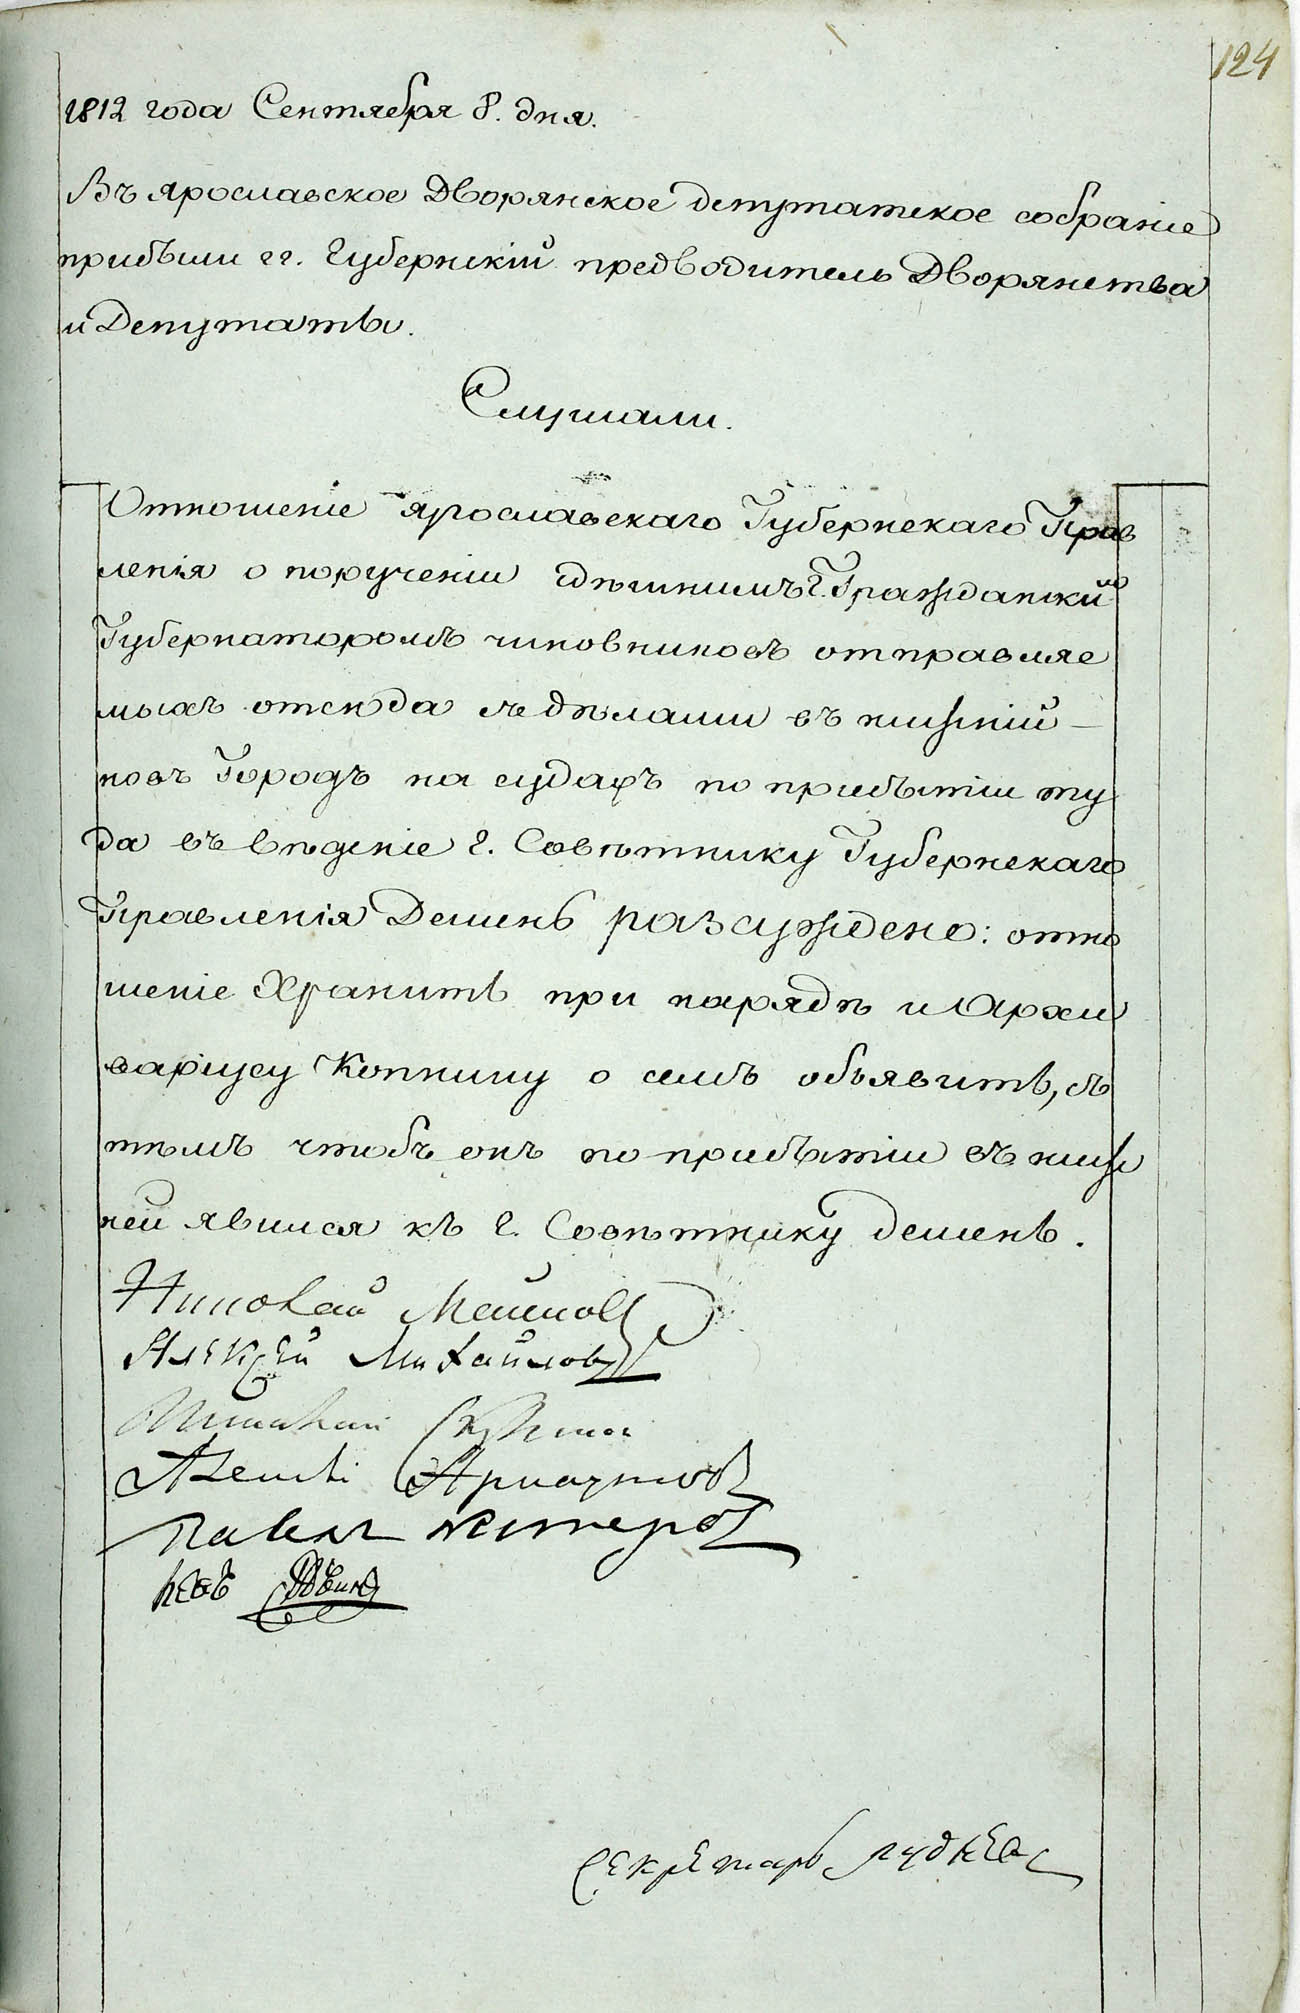 124
1812 года Сентября 8. дня.
Въ Ярославское Дворянское депутатское собраніе
прибыли гг. Губернскій предводитель Дворянства
и Депутаты.
Слушали.
Отношеніе Ярославскаго Губернскаго Прав
ленія о порученіи здѣшнимъ г. Гражданским
Губернаторомъ чиновниковъ отправляе
мыхъ отсюда съ дѣлами въ нижній –
новъ Городъ на судахъ по прибытіи ту
да въ вѣденіе г. Совѣтнику Губернскаго
Правленія Демень разсуждено: отно
шеніе Хранить при нарядѣ и Архи
варіусу Коптину о семъ объявить, съ
тѣмъ чтобъ онъ по прибытіи въ ниж
ней явился къ г. Совѣтнику Демень.
Николай Майков
Алексей Михайлов
Николай
Павел
Левъ
Секретарь